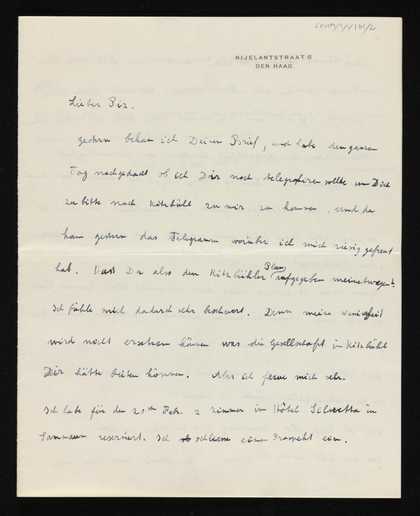 NIJELANTSTRAAT 8
DEN HAAG
Lieber Pis.
gestern bekam ich Deinen Brief, und habe den ganzen
Tag nachgedacht ob ich Dir noch telegrafieren sollte um Dich
zu bitte nach Kitzbühl zu mir zu kommen, und da
kam gestern das Telegramm worüber ich mich riesig gefreut
hab. Hast Du also den Kitzbühler Plan aufgegeben meinetwegen?
Ich fühle mich dadurch sehr beschwert. Denn meine Wenigkeit
wird nicht ersetzen können was die Gesellschaft in Kitzbühl
Dir hätte bieten können. Aber ich freue mich sehr.
Ich habe für den 21ten Feb. 2 Zimmer im Hôtel Silvretta in
Samnaun reserviert. Ich schliesse einen Prospekt ein.